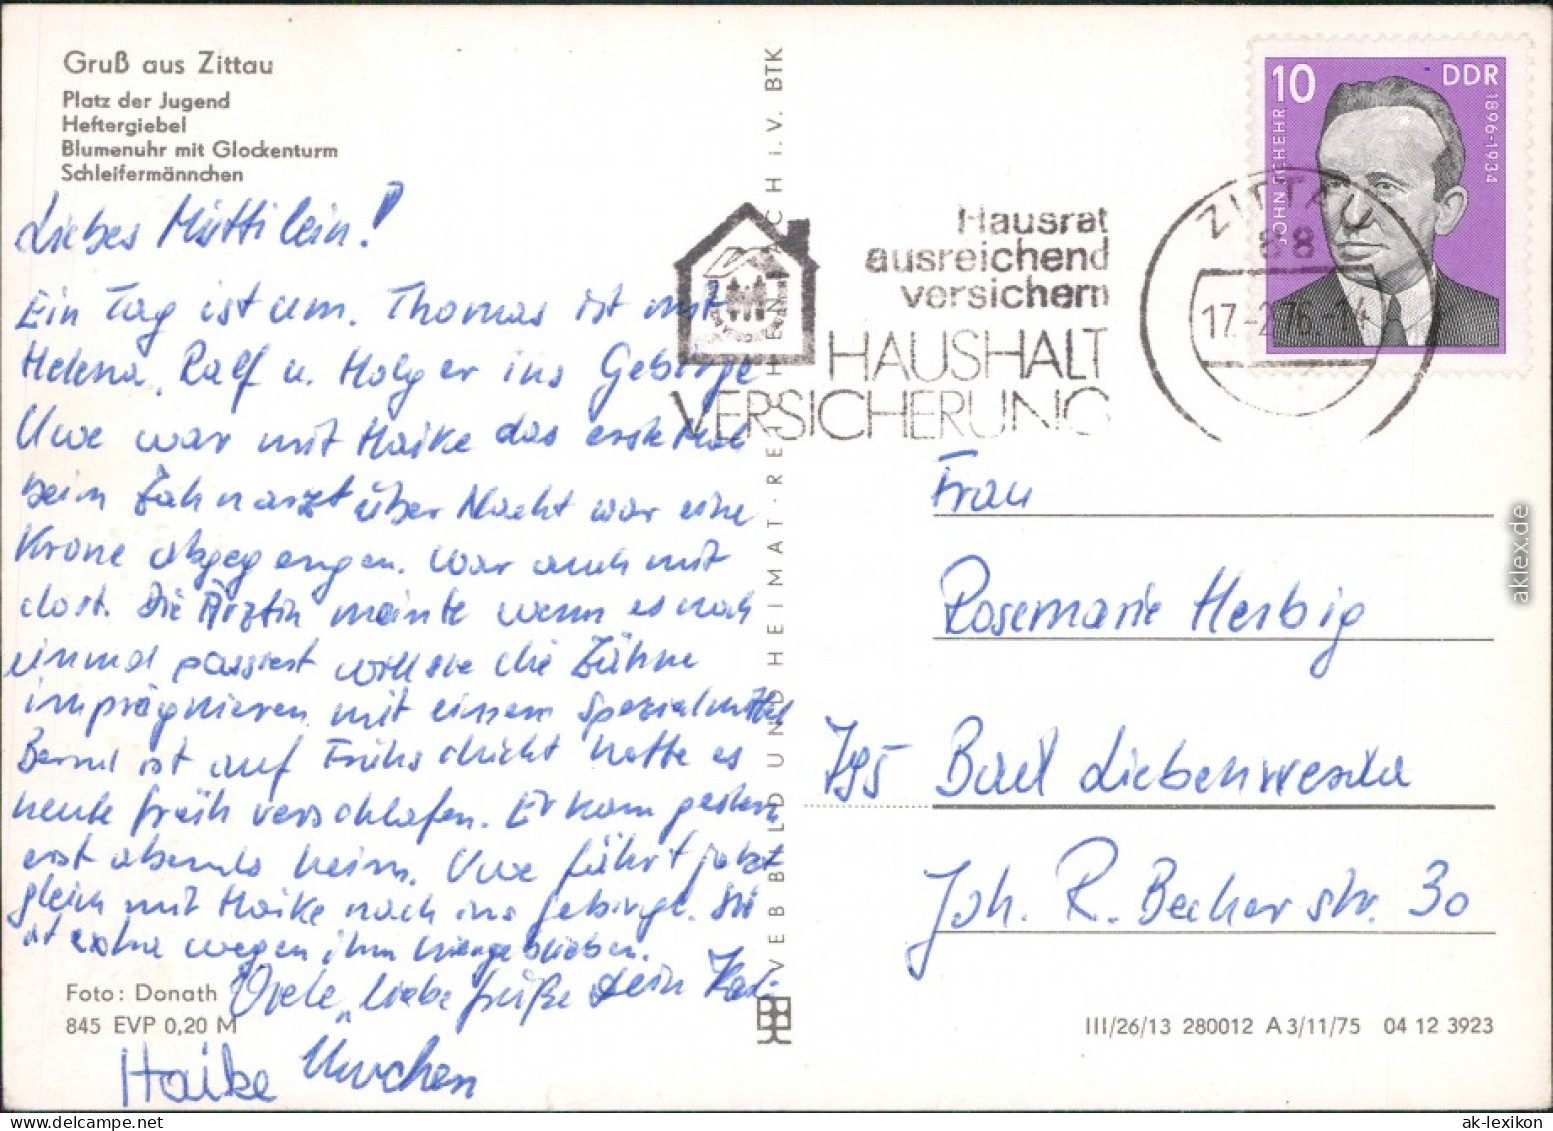 Gruß aus Zittau
Platz der Jugend
Heftergiebel
Blumenuhr mit Glockenturm
Schleifermännchen
Liebes Muttilein!
Ein Tag ist um. Thomas ist mit
Helena, Ralf u. Holger ins Gebirge
Uwe war mit Haike das erste Mal
beim Zahnarzt über Nacht war eine
Krone abgegangen. War auch mit
dort. Die Ärztin meinte wenn es noch
einmal passiert will sie die Zähne
imprägnieren mit einem Spezialmittel
Bernd ist auf Frühschicht hatte es
heute früh verschlafen. Er kam gestern
erst abends heim. Uwe fährt jetzt
gleich mit Haike noch ins Gebirge. Sie
ist extra wegen ihm hiergeblieben.
Viele liebe Grüße Dein
Haike
Foto: Donath
845 EVP 0,20 M
VEB BILD UND HEIMAT · REICHENBACH i. V. BTK
Hausrat
ausreichend
versichern
HAUSHALT
VERSICHERUNG
10
DDR
JOHN SCHEHR
1896-1934
ZITTAU
88
17.-2.76.-14
Frau
Rosemarie Herbig
795 Bad Liebenwerda
Joh. R. Becher str. 30
III/26/13 280012 A 3/11/75 04 12 3923
aklex.de
ak-lexikon